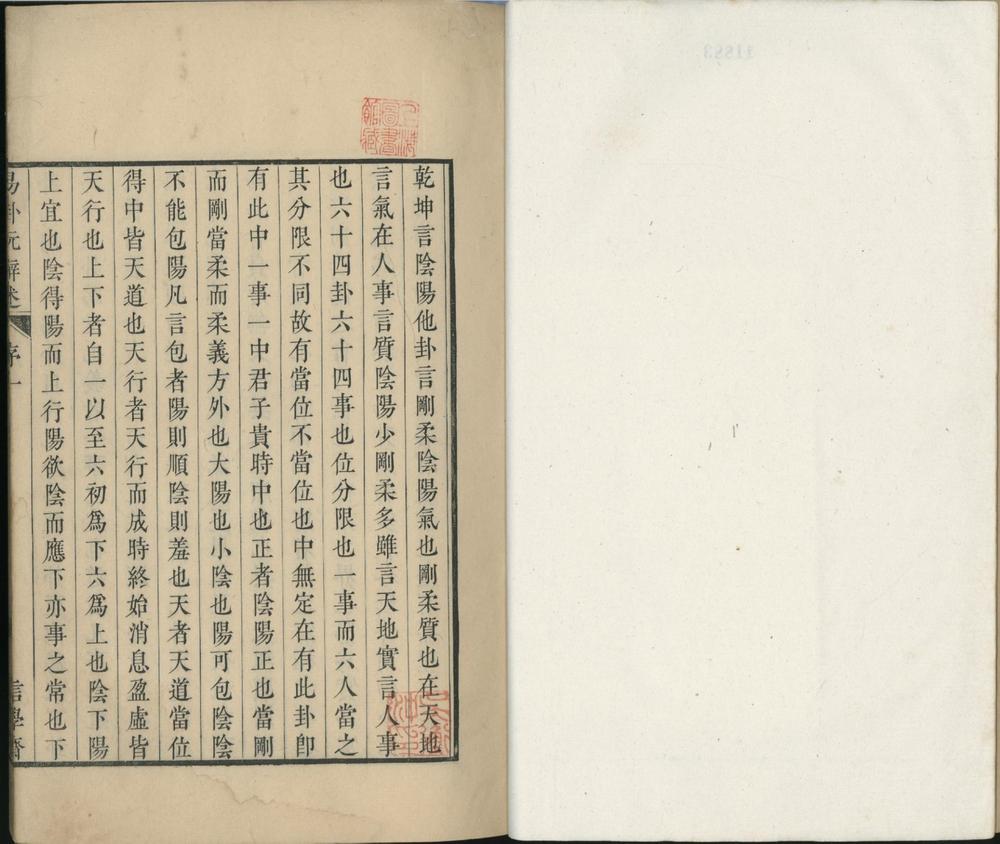 乾坤言陰陽他卦言剛柔陰陽氣也剛柔質也在天地
言氣在人事言質陰陽少剛柔多雖言天地實言人事
也六十四卦六十四事也位分限也一事而六人當之
其分限不同故有當位不當位也中無定在有此卦卽
有此中一事一中君子貴時中也正者陰陽正也當剛
而剛當柔而柔義方外也大陽也小陰也陽可包陰陰
不能包陽凡言包者陽則順陰則羞也天者天道當位
得中皆天道也天行者天行而成時終始消息盈虛皆
天行也上下者自一以至六初爲下六爲上也陰下陽
上宜也陰得陽而上行陽欲陰而應下亦事之常也下
易卦玩辭述 序一 言學齋
上海圖書館藏
11883